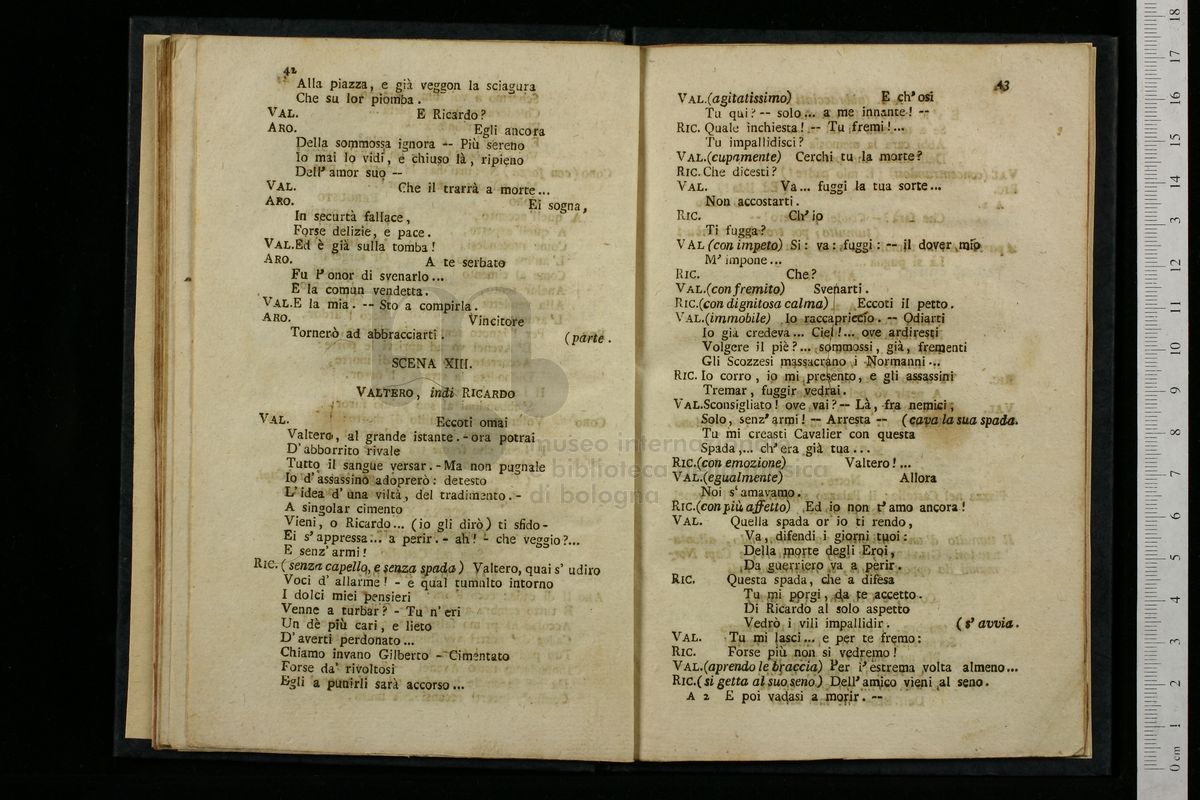 42
Alla piazza, e già veggon la sciagura
Che su lor piomba.
VAL. E Ricardo?
ARO. Egli ancora
Della sommossa ignora -- Più sereno
Io mai lo vidi, e chiuso là, ripieno
Dell' amor suo --
VAL. Che il trarrà a morte...
ARO. Ei sogna,
In securtà fallace,
Forse delizie, e pace.
VAL. Ed è già sulla tomba!
ARO. A te serbato
Fu l' onor di svenarlo...
E la comun vendetta.
VAL. E la mia. -- Sto a compirla.
ARO. Vincitore
Tornerò ad abbracciarti. (parte.
SCENA XIII.
VALTERO, indi RICARDO
VAL. Eccoti omai
Valtero, al grande istante. - ora potrai
D' abborrito rivale
Tutto il sangue versar. - Ma non pugnale
Io d' assassino adoprerò: detesto
L' idea d' una viltà, del tradimento. -
A singolar cimento
Vieni, o Ricardo... (io gli dirò) ti sfido -
Ei s' appressa... a perir. - ah! - che veggio?...
E senz' armi!
RIC. (senza capello, e senza spada) Valtero, quai s' udiro
Voci d' allarme! - e qual tumulto intorno
I dolci miei pensieri
Venne a turbar? - Tu n' eri
Un dè più cari, e lieto
D' averti perdonato...
Chiamo invano Gilberto - Cimentato
Forse da' rivoltosi
Egli a punirli sarà accorso...
43
VAL. (agitatissimo) E ch' osi
Tu qui? -- solo... a me innante! --
RIC. Quale inchiesta! -- Tu fremi!...
Tu impallidisci?
VAL. (cupamente) Cerchi tu la morte?
RIC. Che dicesti?
VAL. Va... fuggi la tua sorte...
Non accostarti.
RIC. Ch' io
Ti fugga?
VAL (con impeto) Si: va: fuggi: -- il dover mio
M' impone...
RIC. Che?
VAL. (con fremito) Svenarti.
RIC. (con dignitosa calma) Eccoti il petto.
VAL. (immobile) Io raccapriccio. -- Odiarti
Io già credeva... Ciel!... ove ardiresti
Volgere il piè?... sommossi, già, frementi
Gli Scozzesi massacrano i Normanni...
RIC. Io corro, io mi presento, e gli assassini
Tremar, fuggir vedrai.
VAL. Sconsigliato! ove vai? -- Là, fra nemici,
Solo, senz' armi! -- Arresta -- (cava la sua spada.
Tu mi creasti Cavalier con questa
Spada,... ch' era già tua...
RIC. (con emozione) Valtero!...
VAL. (egualmente) Allora
Noi s' amavamo.
RIC. (con più affetto) Ed io non t' amo ancora!
VAL. Quella spada or io ti rendo,
Va, difendi i giorni tuoi:
Della morte degli Eroi,
Da guerriero va a perir.
RIC. Questa spada, che a difesa
Tu mi porgi, da te accetto.
Di Ricardo al solo aspetto
Vedrò i vili impallidir. (s' avvia.
VAL. Tu mi lasci... e per te fremo:
RIC. Forse più non si vedremo!
VAL. (aprendo le braccia) Per l' estrema volta almeno...
RIC. (si getta al suo seno) Dell' amico vieni al seno.
A 2 E poi vadasi a morir. --
museo internazionale
biblioteca della musica
di bologna
0 cm 1 2 3 4 5 6 7 8 9 10 11 12 13 14 15 16 17 18